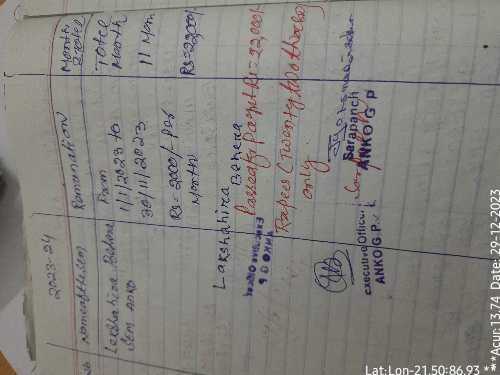 2023-24
No Name of the sem Remunation Month & total
Lakshahira Behera From Total
SEM ANKO 1/1/2023 to Month
30/11/2023 11 Mon
Rs=2000/- per Rs=22000/-
Month
Lakshahira Behera
Passed for Payment Rs=22,000/-
Rupees (Twenty two thousand
only
Executive Officer Sarapanch
ANKO G.P ANKO G P
Lat:Lon-21.50:86.93 ***Acur:13.74 Date: 29-12-2023